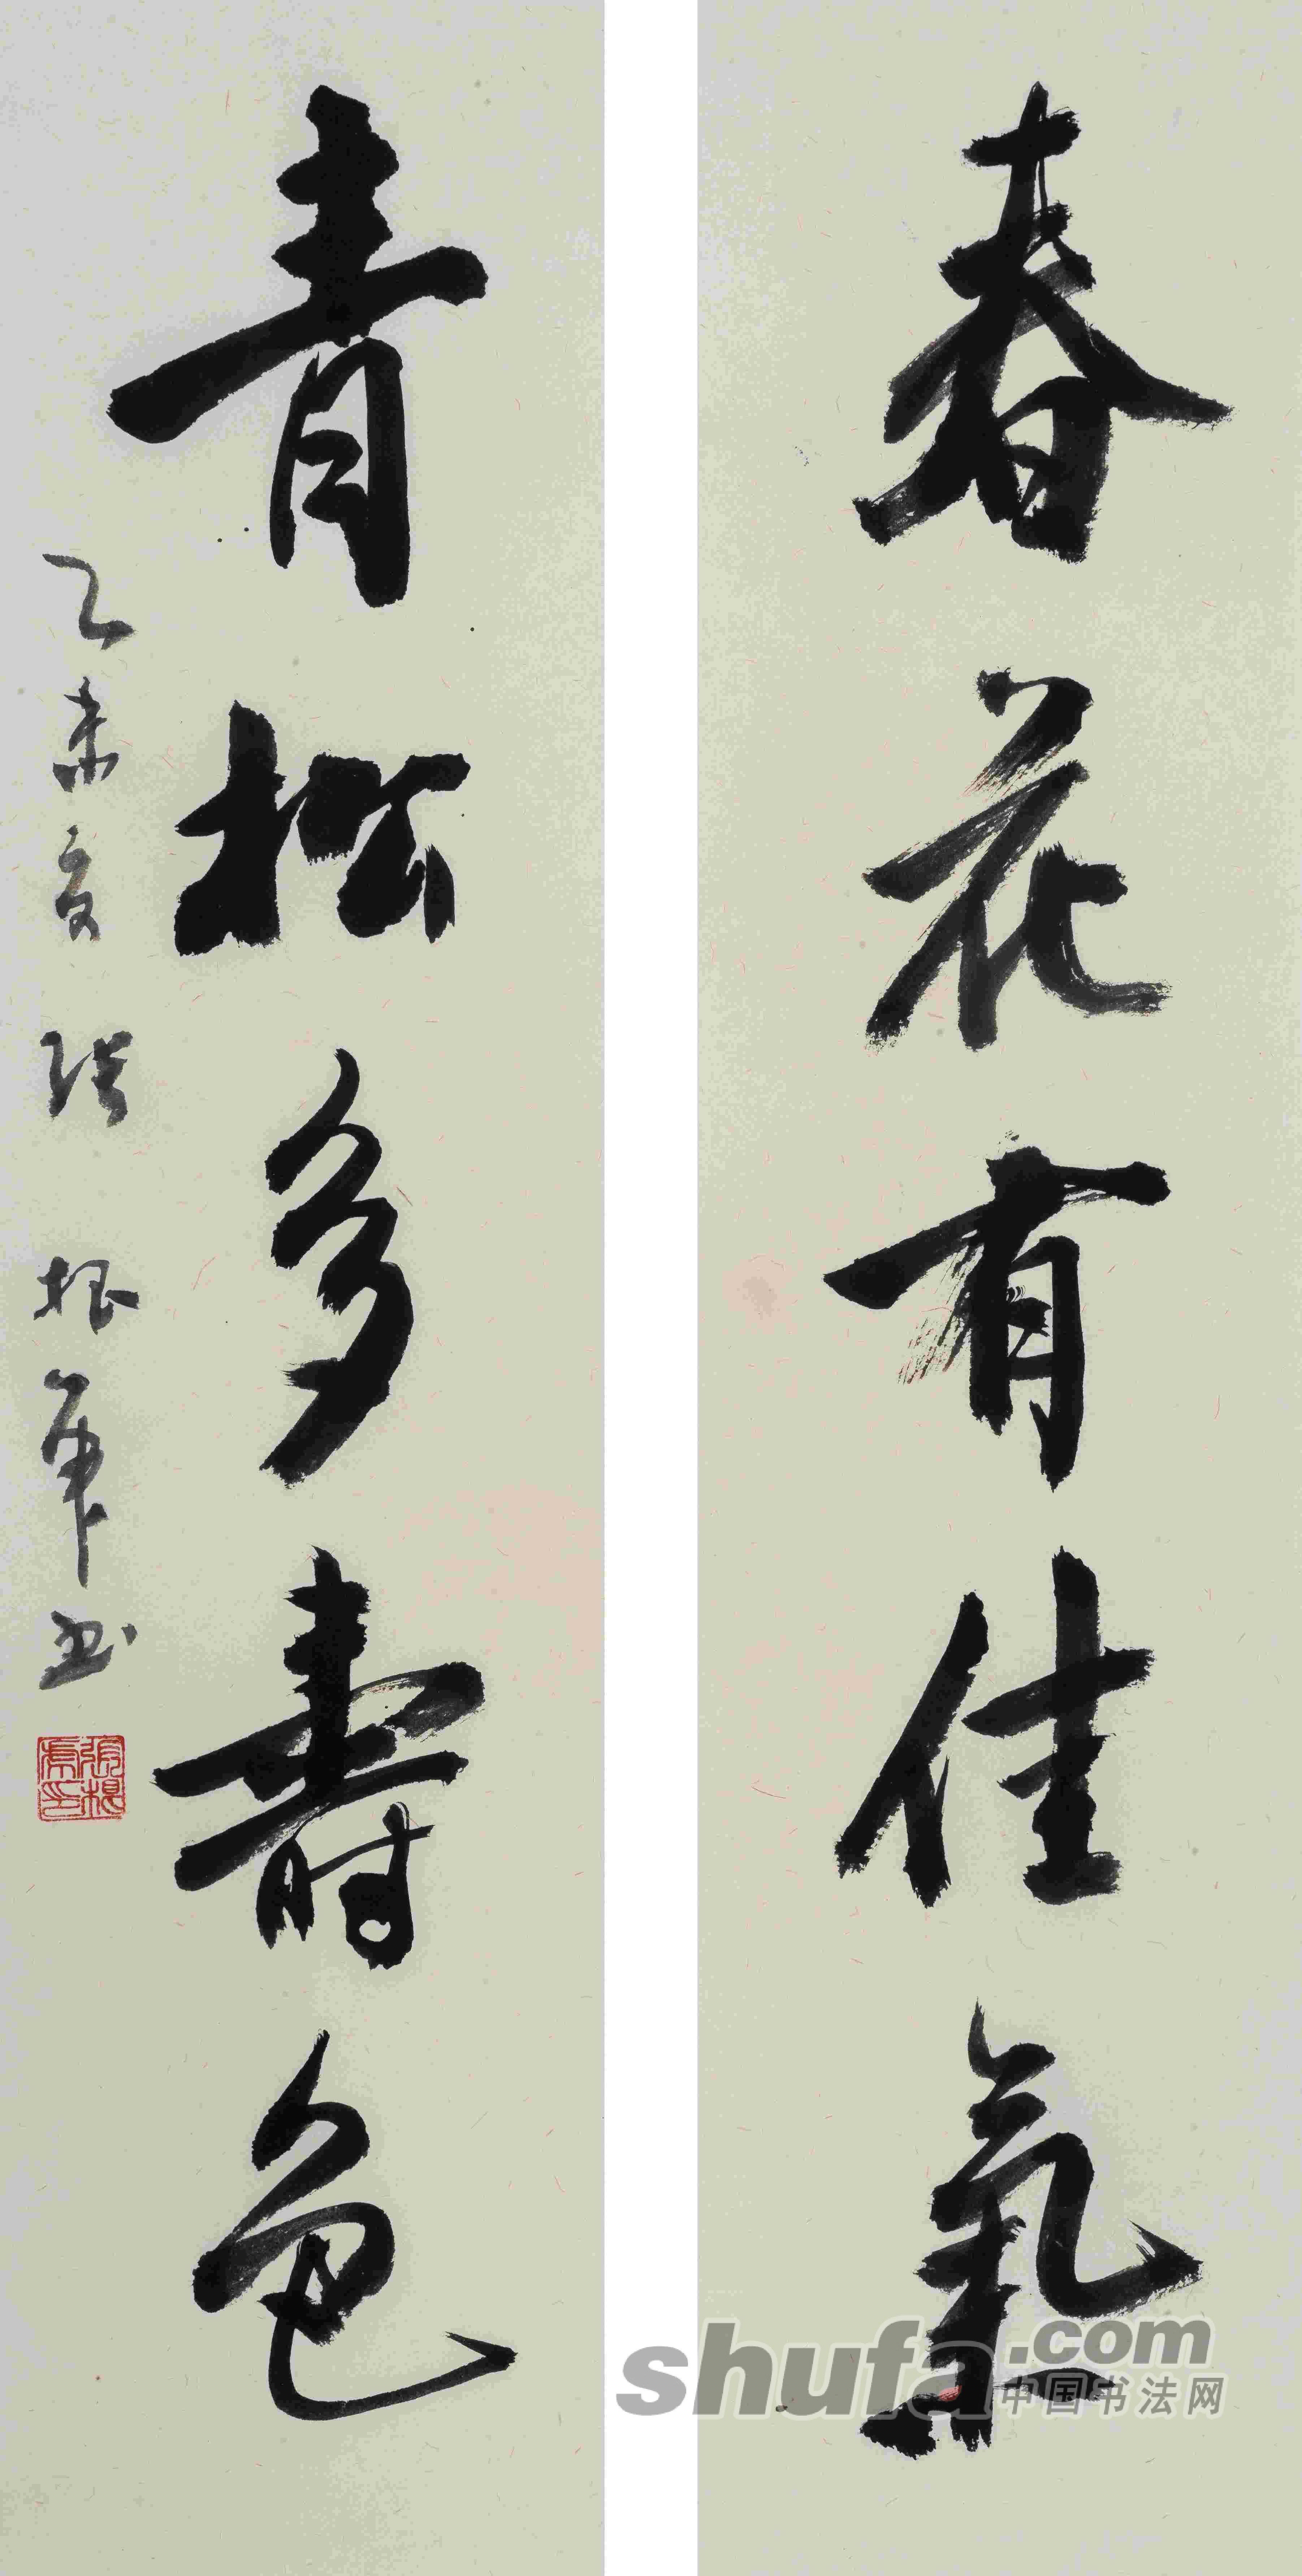 春花有佳氣
青松多壽色
乙未夏 张根军书
shufa.com
中国书法网